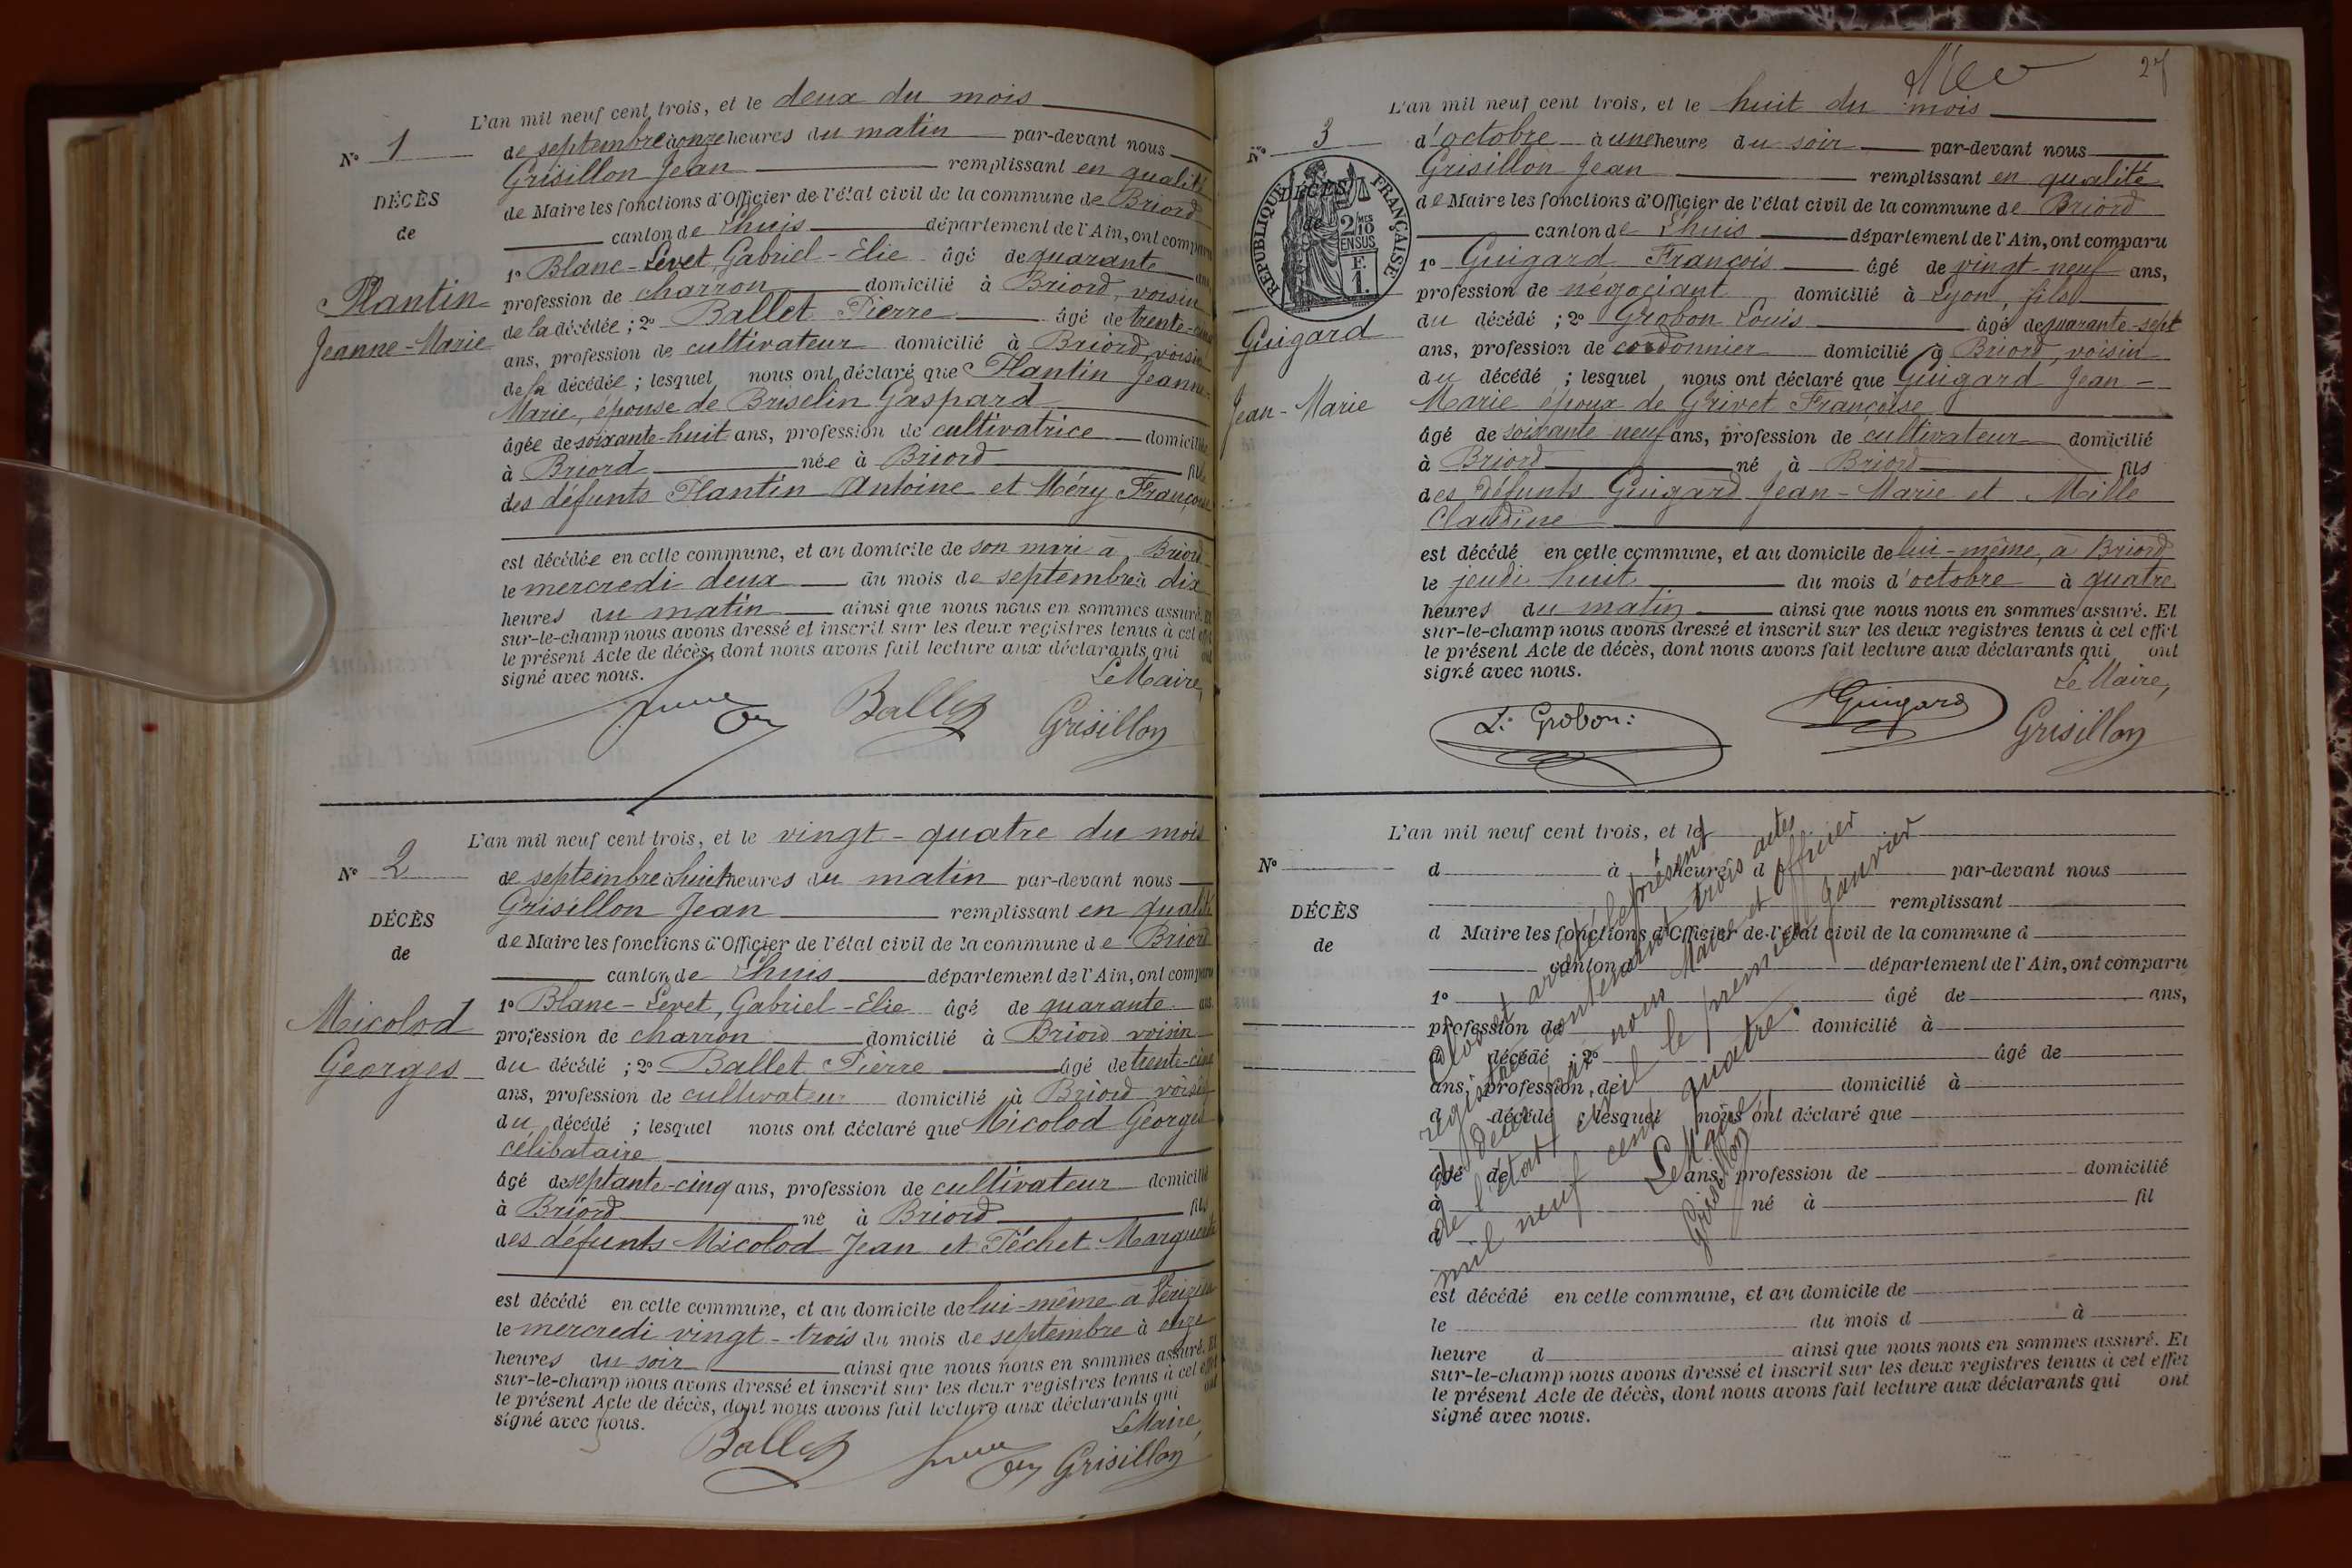 L'an mil neuf cent trois, et le deux du mois
N° 1
de septembre à onze heures du matin par-devant nous
Grisillon Jean remplissant en qualité
DÉCÈS
de Maire les fonctions d'Officier de l'état civil de la commune de Briord
de
canton de Lhuis département de l'Ain, ont comparu
1° Blanc-Levet, Gabriel-Elie âgé de quarante ans,
Plantin
profession de charron domicilié à Briord, voisin
de la décédée ; 2° Ballet Pierre âgé de trente-cinq
Jeanne-Marie
ans, profession de cultivateur domicilié à Briord, voisin
de la décédée ; lesquel nous ont déclaré que Plantin Jeanne-
Marie, épouse de Briselin Gaspard
âgée de soixante-huit ans, profession de cultivatrice domiciliée
à Briord née à Briord fille
des défunts Plantin Antoine et Méry Françoise
est décédée en cette commune, et au domicile de son mari à Briord
le mercredi deux du mois de septembre à dix
heures du matin ainsi que nous nous en sommes assuré. Et
sur-le-champ nous avons dressé et inscrit sur les deux registres tenus à cet effet
le présent Acte de décès, dont nous avons fait lecture aux déclarants qui ont
signé avec nous.
Le Maire,
Ballet Grisillon
L'an mil neuf cent trois, et le vingt-quatre du mois
N° 2
de septembre à huit heures du matin par-devant nous
Grisillon Jean remplissant en qualité
DÉCÈS
de Maire les fonctions d'Officier de l'état civil de la commune de Briord
de
canton de Lhuis département de l'Ain, ont comparu
1° Blanc-Levet, Gabriel-Elie âgé de quarante ans
Micolod
profession de charron domicilié à Briord voisin
Georges
du décédé ; 2° Ballet Pierre âgé de trente-cinq
ans, profession de cultivateur domicilié à Briord voisin
du décédé ; lesquel nous ont déclaré que Micolod Georges
célibataire
âgé de septante-cinq ans, profession de cultivateur domicilié
à Briord né à Briord fils
des défunts Micolod Jean et Péchet Marguerite
est décédé en cette commune, et au domicile de lui-même à Vérizieu
le mercredi vingt-trois du mois de septembre à onze
heures du soir ainsi que nous nous en sommes assuré. Et
sur-le-champ nous avons dressé et inscrit sur les deux registres tenus à cet effet
le présent Acte de décès, dont nous avons fait lecture aux déclarants qui ont
signé avec nous.
Le Maire,
Ballet Grisillon
27
L'an mil neuf cent trois, et le huit du mois
N° 3
d'octobre à une heure du soir par-devant nous
Grisillon Jean remplissant en qualité
DÉCÈS
de
RÉPUBLIQUE FRANÇAISE
2/10 MES
EN SUS
F.
1.
de Maire les fonctions d'Officier de l'état civil de la commune de Briord
canton de Lhuis département de l'Ain, ont comparu
1° Guigard François âgé de vingt-neuf ans,
profession de négociant domicilié à Lyon, fils
Guigard
du décédé ; 2° Grobon Louis âgé de quarante-sept
ans, profession de cordonnier domicilié à Briord, voisin
du décédé ; lesquel nous ont déclaré que Guigard Jean-
Jean-Marie
Marie époux de Grivet Françoise
âgé de soixante neuf ans, profession de cultivateur domicilié
à Briord né à Briord fils
des défunts Guigard Jean-Marie et Mille
Claudine
est décédé en cette commune, et au domicile de lui-même, à Briord
le jeudi huit du mois d'octobre à quatre
heures du matin ainsi que nous nous en sommes assuré. Et
sur-le-champ nous avons dressé et inscrit sur les deux registres tenus à cet effet
le présent Acte de décès, dont nous avons fait lecture aux déclarants qui ont
signé avec nous.
Le Maire,
L. Grobon Guigard Grisillon
L'an mil neuf cent trois, et le
N°
d à heure d par-devant nous
remplissant
DÉCÈS
d Maire les fonctions d'Officier de l'état civil de la commune d
de
canton département de l'Ain, ont comparu
1° âgé de ans,
profession de domicilié à
d décédé ; 2° âgé de
ans, profession de domicilié à
d décédé ; lesquel nous ont déclaré que
âgé de ans, profession de domicilié
à né à fil
d
est décédé en cette commune, et au domicile de
le du mois d à
heure d ainsi que nous nous en sommes assuré. Et
sur-le-champ nous avons dressé et inscrit sur les deux registres tenus à cet effet
le présent Acte de décès, dont nous avons fait lecture aux déclarants qui ont
signé avec nous.
Clos et arrêté le présent
registre contenant trois actes
de décès par nous Maire et Officier
de l'état civil le premier Janvier
mil neuf cent quatre.
Le Maire,
Grisillon